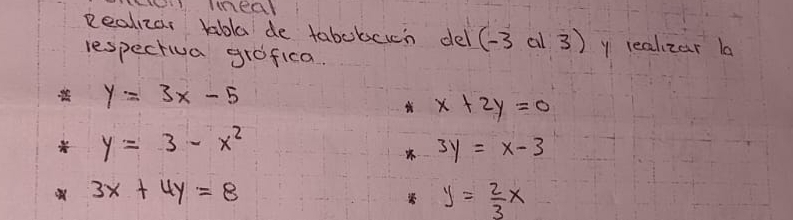 lineal
Realizar tabla de tabulación del (-3 al 3) y realizar la
respectiva gráfica.
* y = 3x - 5
* y = 3 - x²
* 3x + 4y = 8
* x + 2y = 0
* 3y = x - 3
* y = 2/3 x